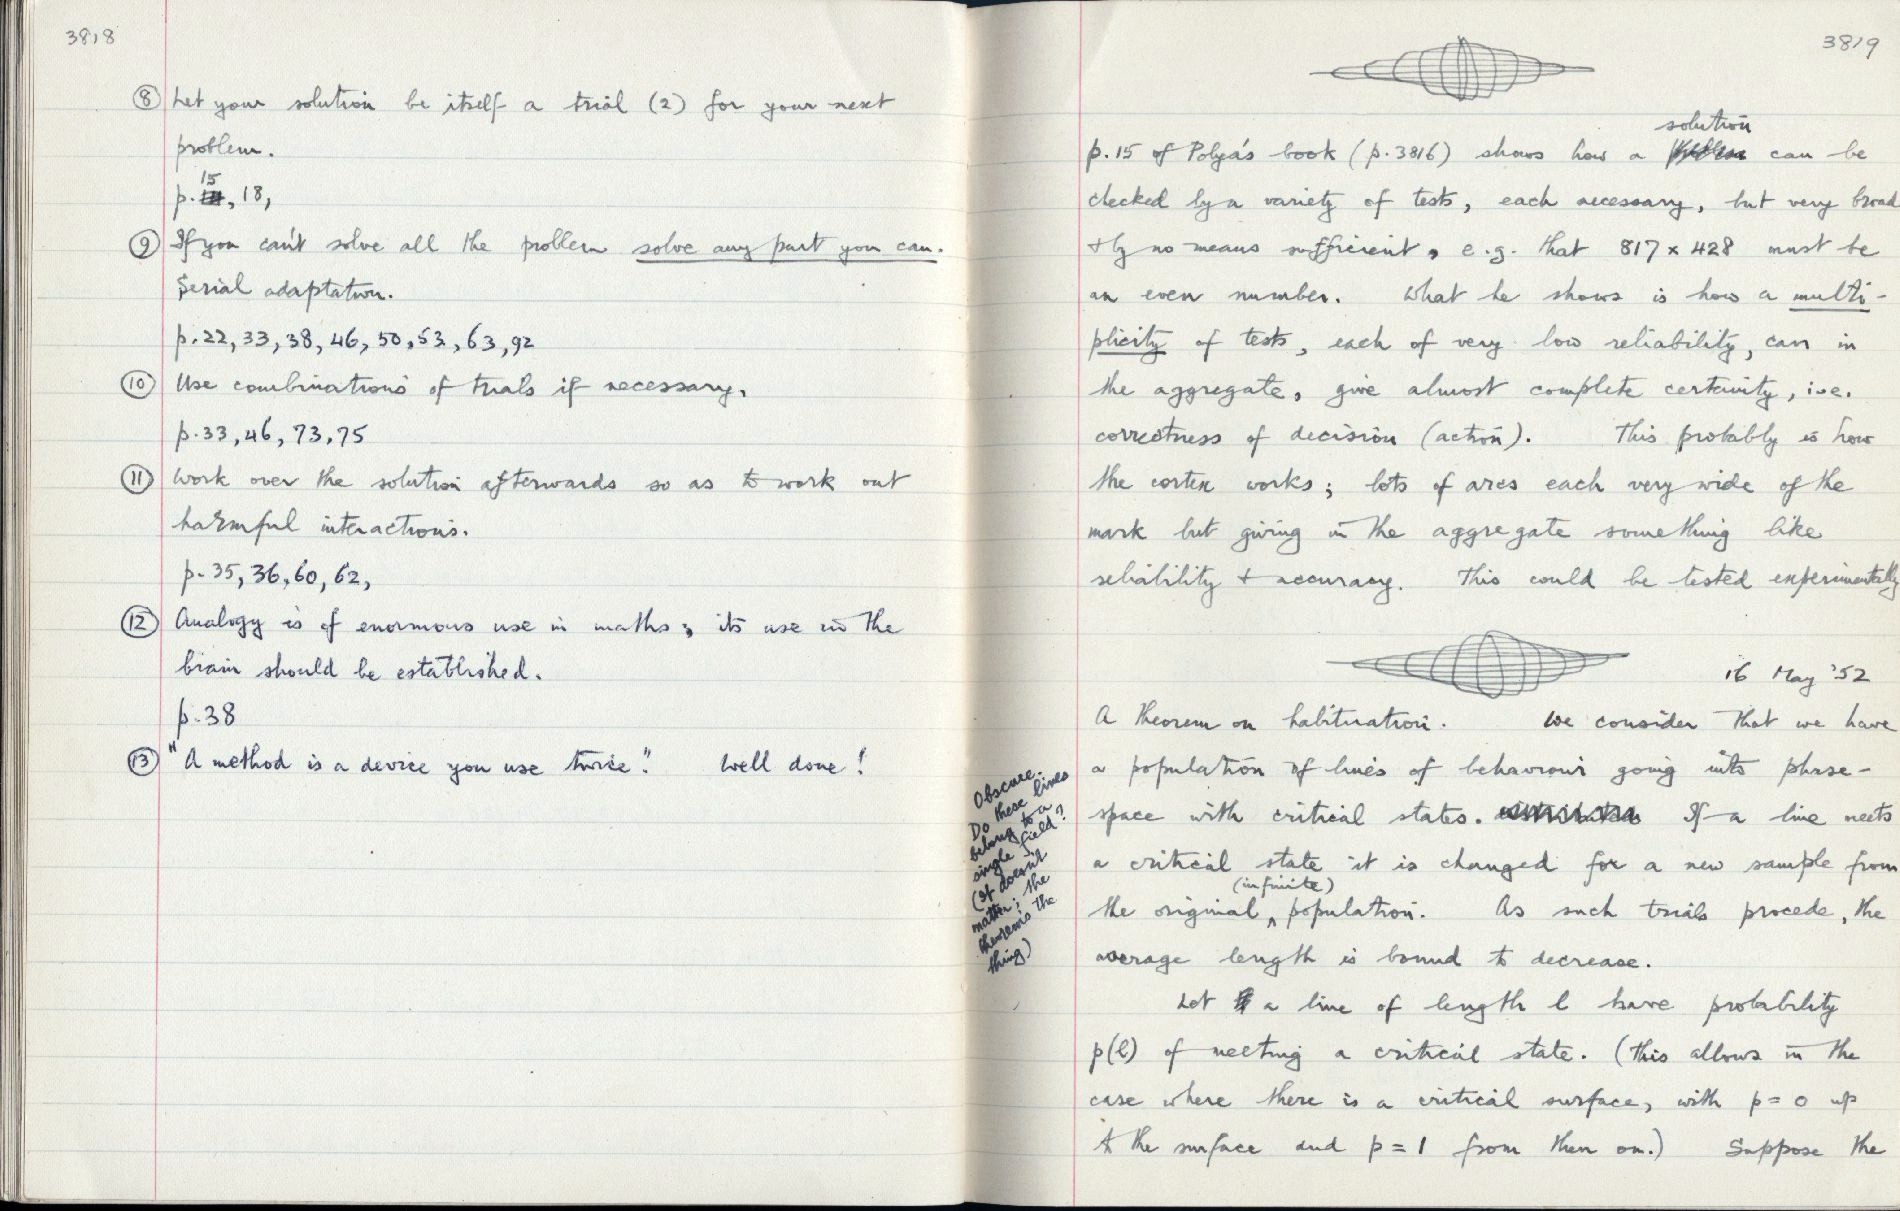 3818
⑧ Let your solution be itself a trial (2) for your next
problem.
p. 15, 18,
⑨ If you can't solve all the problem solve any part you can.
Serial adaptation.
p. 22, 33, 38, 46, 50, 53, 63, 92
⑩ Use combinations of trials if necessary.
p. 33, 46, 73, 75
⑪ Work over the solution afterwards so as to work out
harmful interactions.
p. 35, 36, 60, 62,
⑫ Analogy is of enormous use in maths; its use in the
brain should be established.
p. 38
⑬ "A method is a device you use twice". Well done!
3819
solution
p. 15 of Polya's book (p. 3816) shows how a problem can be
checked by a variety of tests, each necessary, but very broad
+ by no means sufficient, e.g. that 817 x 428 must be
an even number. What he shows is how a multi-
plicity of tests, each of very low reliability, can in
the aggregate, give almost complete certainity, i.e.
correctness of decision (action). This probably is how
the cortex works; lots of arcs each very wide of the
mark but giving in the aggregate something like
reliability + accuracy. This could be tested experimentally
16 May '52
A theorem on habituation. We consider that we have
a population of lines of behaviour going into phase-
space with critical states. If a line meets
a critical state it is changed for a new sample from
(infinite)
the original, population. As such trials procede, the
average length is bound to decrease.
Let a line of length l have probability
p(l) of meeting a critical state. (This allows in the
case where there is a critical surface, with p = 0 up
to the surface and p = 1 from then on.) Suppose the
Obscure.
Do these lines
belong to a
single field?
(It doesn't
matter; the
theorem's the
thing)